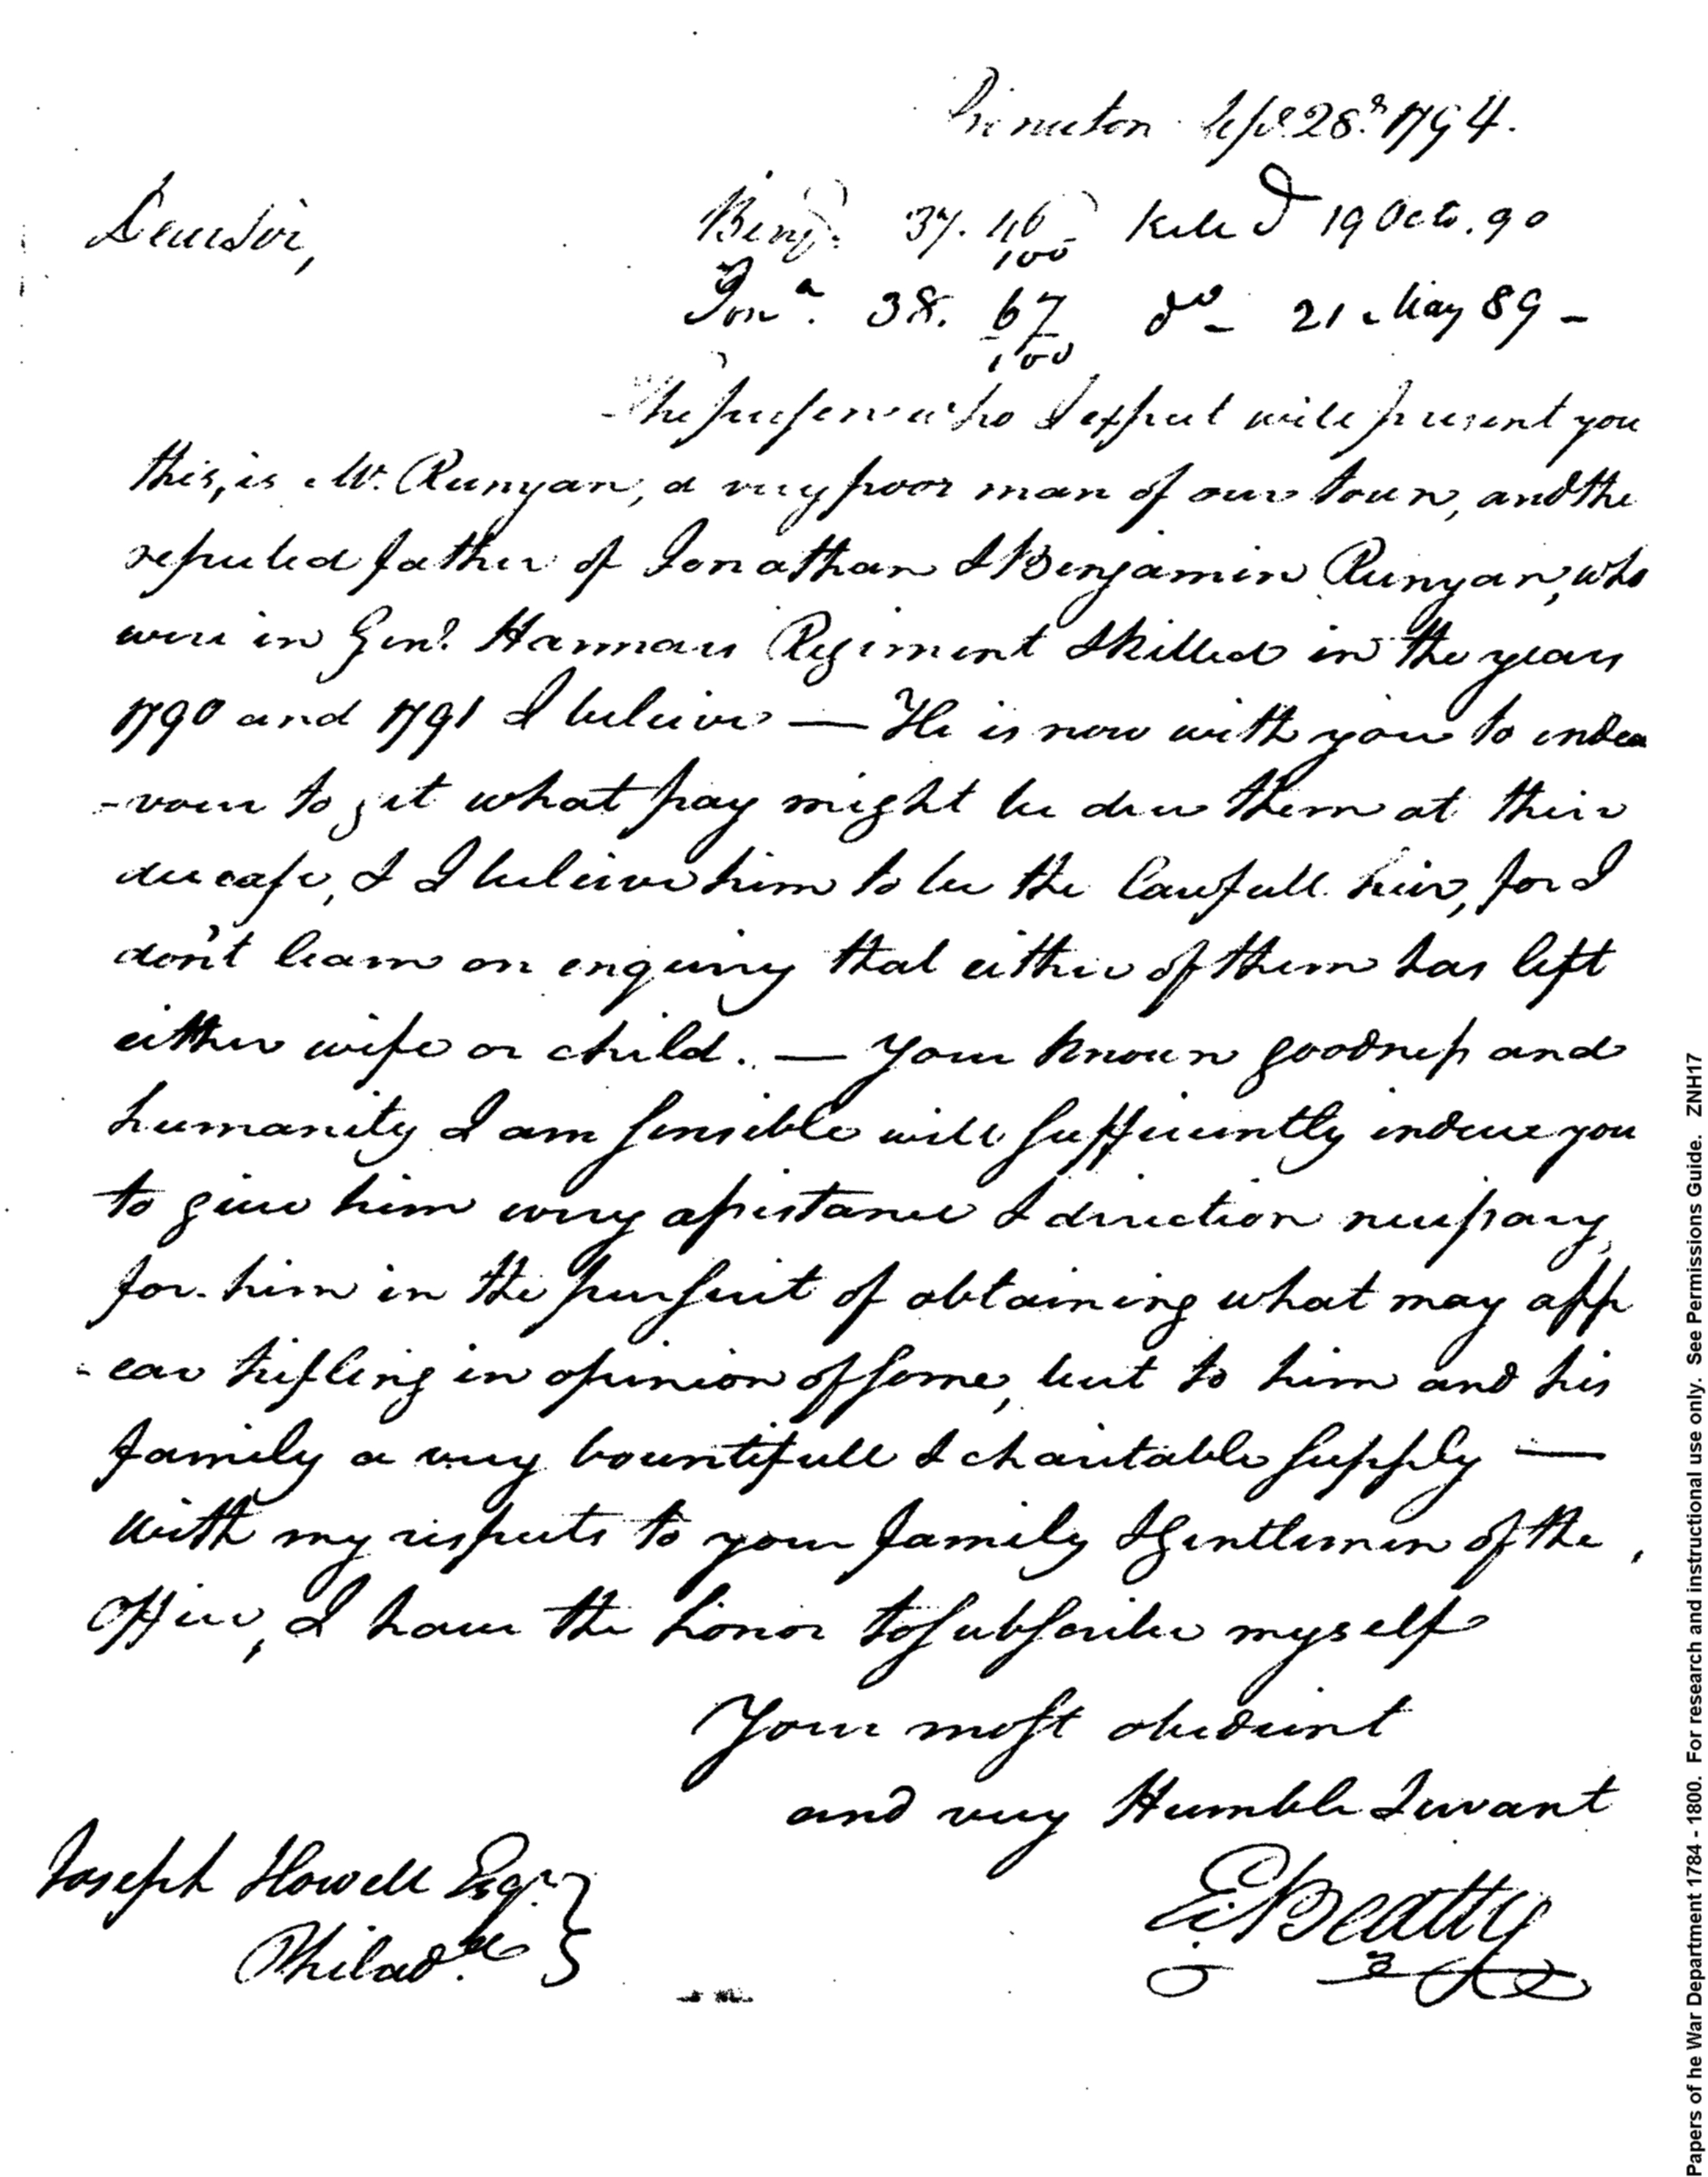 Princeton Sept. 28th 1794.
Dear Sir,
Benj. 37. 46/100 Kill'd 19 Octo. 90
Jona. 38. 67/100 do - 21 May 89 -
The person who I expect will present you
this, is Mr. Runyan, a very poor man of our town, and the
reputed father of Jonathan & Benjamin Runyan, who
were in Genl. Harmars Regiment & killed in the years
1790 and 1791 I beleive — He is now with you to endea
-vour to get what pay might be due them at their
decease, & I beleive him to be the lawfull heir, for I
don't learn on enquiry that either of them has left
either wife or child. — Your known goodness and
humanity I am sensible will sufficiently induce you
to give him every assistance & direction necessary,
for him in the pursuit of obtaining what may app
-ear trifling in opinion of some, but to him and his
family a very bountifull & charitable supply —
With my respects to your family & Gentlemen of the
Office, I have the honor to subscribe myself
Your most obedient
and very Humble Servant
Joseph Howell Esqr.
Philade.
E: Beatty
Papers of he War Department 1784 - 1800. For research and instructional use only. See Permissions Guide. ZNH17